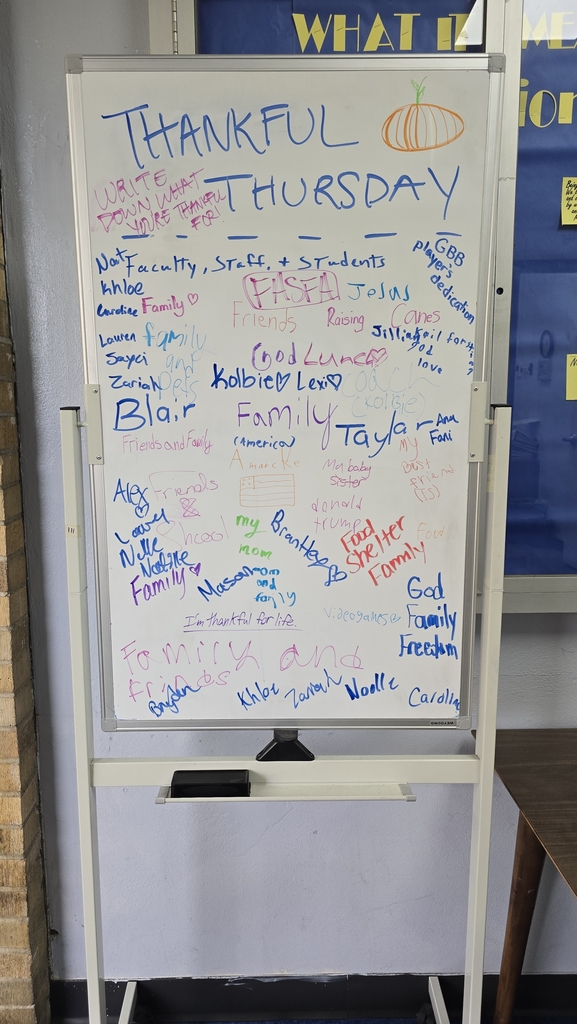 WHAT i
ME
ion
THANKFUL
THURSDAY
WRITE
DOWN WHAT
YOU'RE THANKFUL
FOR
Faculty, Staff, + Students
GBB
player's
dedication
Khloe
FASFA
Jesus
Caroline
Family ♡
Friends
Raising
Canes
Lauren
family
and
Pets
Jillian
god
love
Good Lunch♡
Sayci
Zariah
Kolbie♡ Lexi♡
coach
(Kolbie)
Blair
Family
Taylar
Ana
Fani
Friends and Family
(America)
My
Best
friend
My baby
sister
Alex
Friends
donald
trump
my
mom
Brantley
Food
Shelter
Family
Food
Nelle
Natalie
Family ♡
Mason
mom
and
family
God
Family
Freedom
I'm thankful for life.
Videogames
Family and
friends
Brayden
Khloe
Zariah
Noelle
Caroline